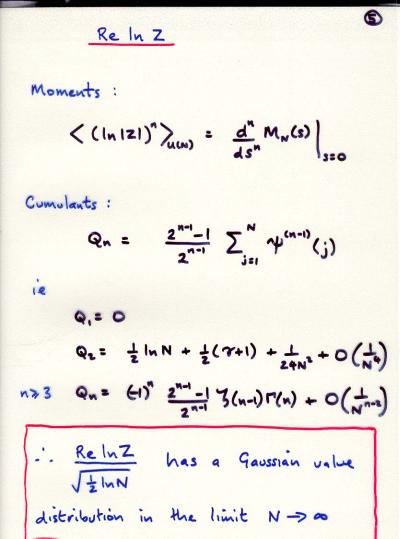 ⑤
Re ln Z
Moments :
< (ln|Z|)ⁿ >_U(N) = dⁿ/dsⁿ M_N(s) |_s=0
Cumulants :
Qₙ = (2ⁿ⁻¹-1)/(2ⁿ⁻¹) Σ_{j=1}^{N} ψ⁽ⁿ⁻¹⁾(j)
ie
Q₁ = 0
Q₂ = ½ ln N + ½(γ+1) + 1/(24N²) + O(1/N⁴)
n≥3 Qₙ = (-1)ⁿ (2ⁿ⁻¹-1)/(2ⁿ⁻¹) ζ(n-1)Γ(n) + O(1/Nⁿ⁻²)
∴ Re ln Z / √(½ ln N) has a Gaussian value
distribution in the limit N → ∞